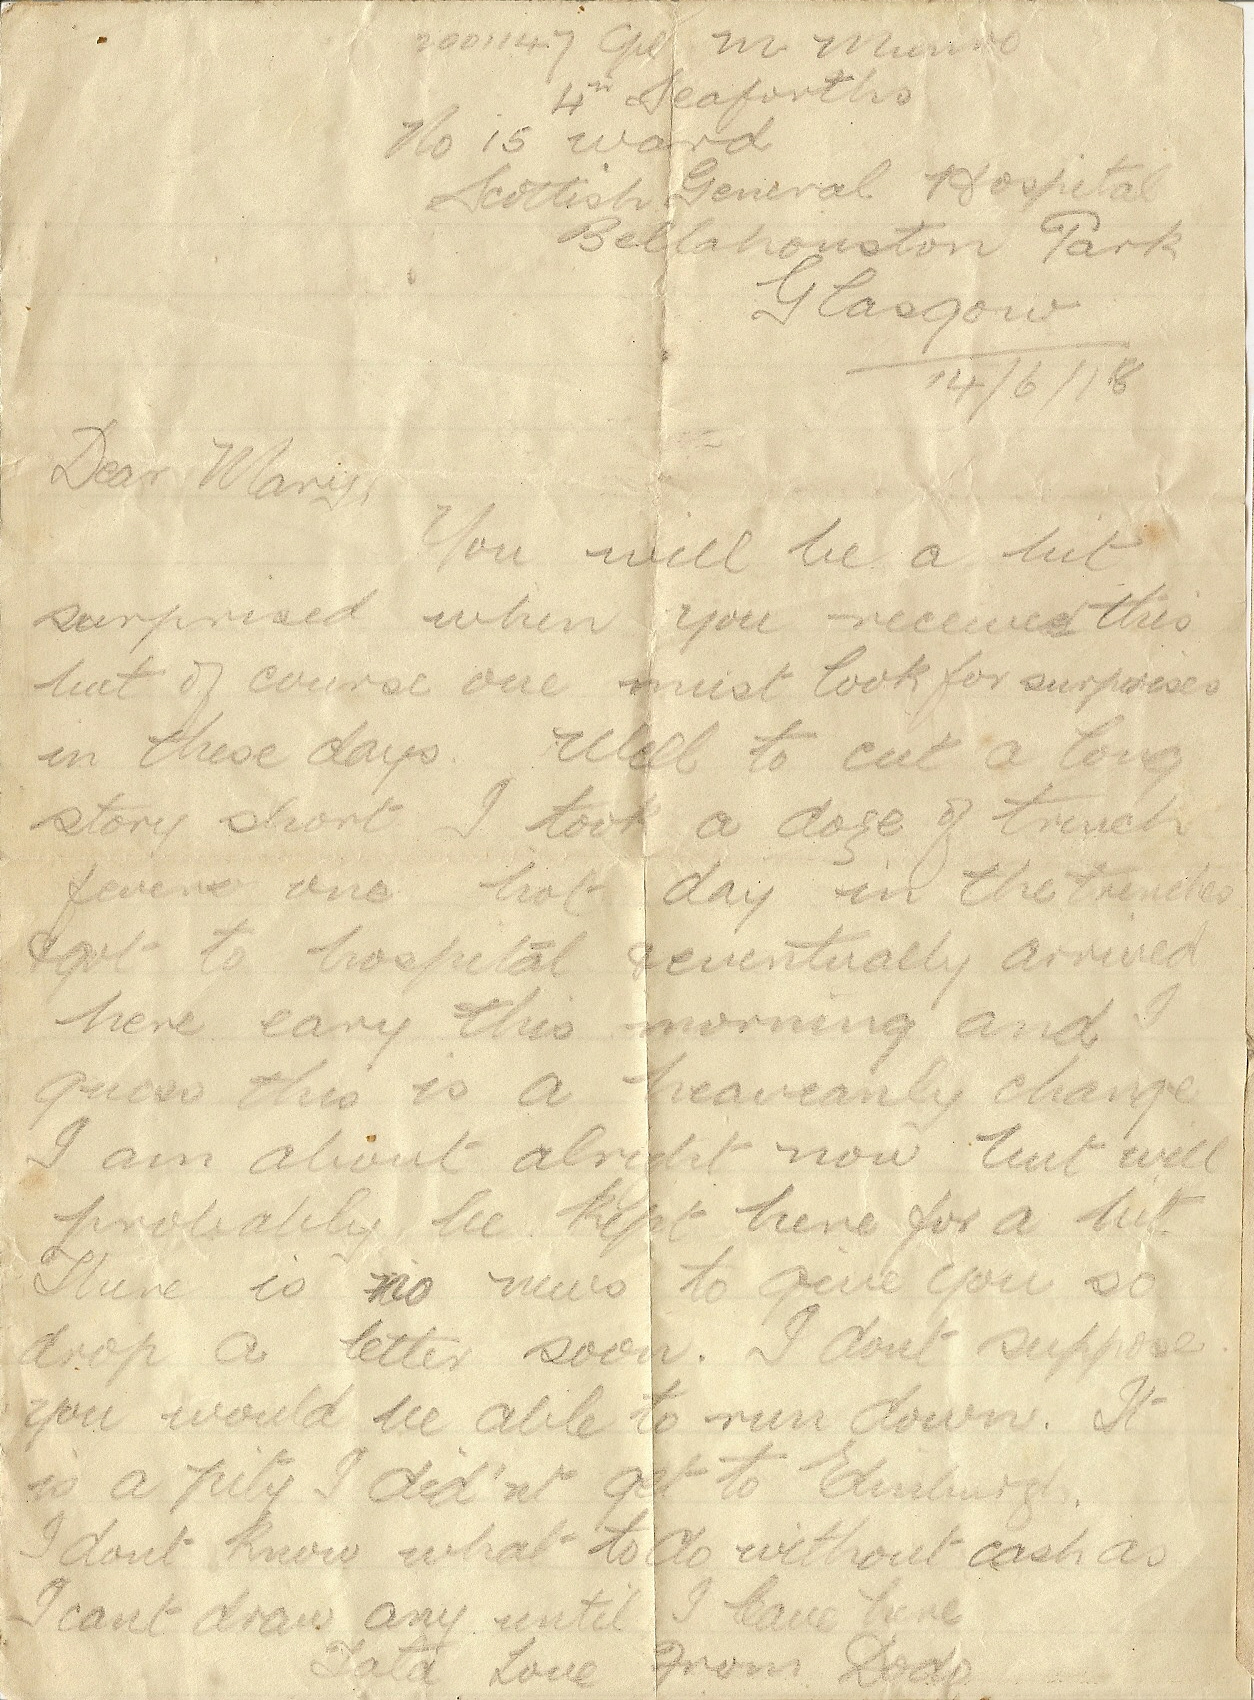 2001147 Cpl M Munro
4th Seaforths
No 15 ward
Scottish General Hospital
Bellahouston Park
Glasgow
14/6/18
Dear Mary,
You will be a bit
surprised when you received this
but of course one must look for surprises
in these days. Well to cut a long
story short I took a doze of trench
fever one hot day in the trenches
& got to hospital & eventually arrived
here eary this morning and I
guess this is a heaveanly change
I am about alright now but will
probably be kept here for a bit.
There is no news to give you so
drop a letter soon. I dont suppose
you would be able to run down. It
is a pity I did'nt get to Edinburgh.
I dont know what to do without cash as
I cant draw any until I leave here
Tata Love From Dodo